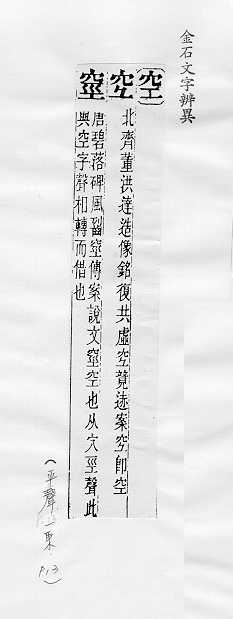 金石文字辨異
空
空
北齊董洪達造像銘復共虛空競迹案空即空
唐碧落碑風傳案說文空也从穴巠聲此
與空字聲和轉而借也
(平聲一東 P.13)